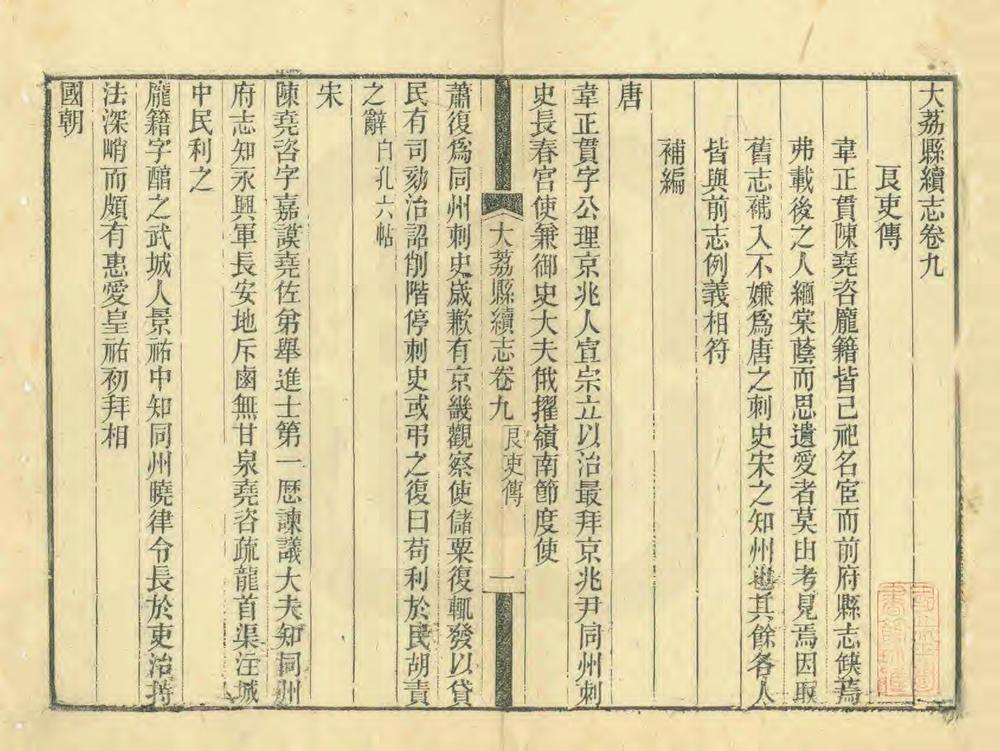 大荔縣續志卷九
良吏傳
韋正貫陳堯咨龐籍皆已祀名宦而前府縣志缺焉
弗載後之人緬棠蔭而思遺愛者莫由考見焉因取
舊志補入不嫌爲唐之刺史宋之知州也其餘各人
皆與前志例義相符
補編
唐
韋正貫字公理京兆人宣宗立以治最拜京兆尹同州刺
史長春宮使兼御史大夫俄擢嶺南節度使
大荔縣續志卷九 良吏傳 一
蕭復爲同州刺史歲歉有京畿觀察使儲粟復輒發以貸
民有司劾治詔削階停刺史或弔之復曰苟利於民胡責
之辭 白孔六帖
宋
陳堯咨字嘉謨堯佐弟舉進士第一歷諫議大夫知同州
府志知永興軍長安地斥鹵無甘泉堯咨疏龍首渠注城
中民利之
龐籍字醇之武城人景祐中知同州曉律令長於吏治持
法深峭而頗有惠愛皇祐初拜相
國朝